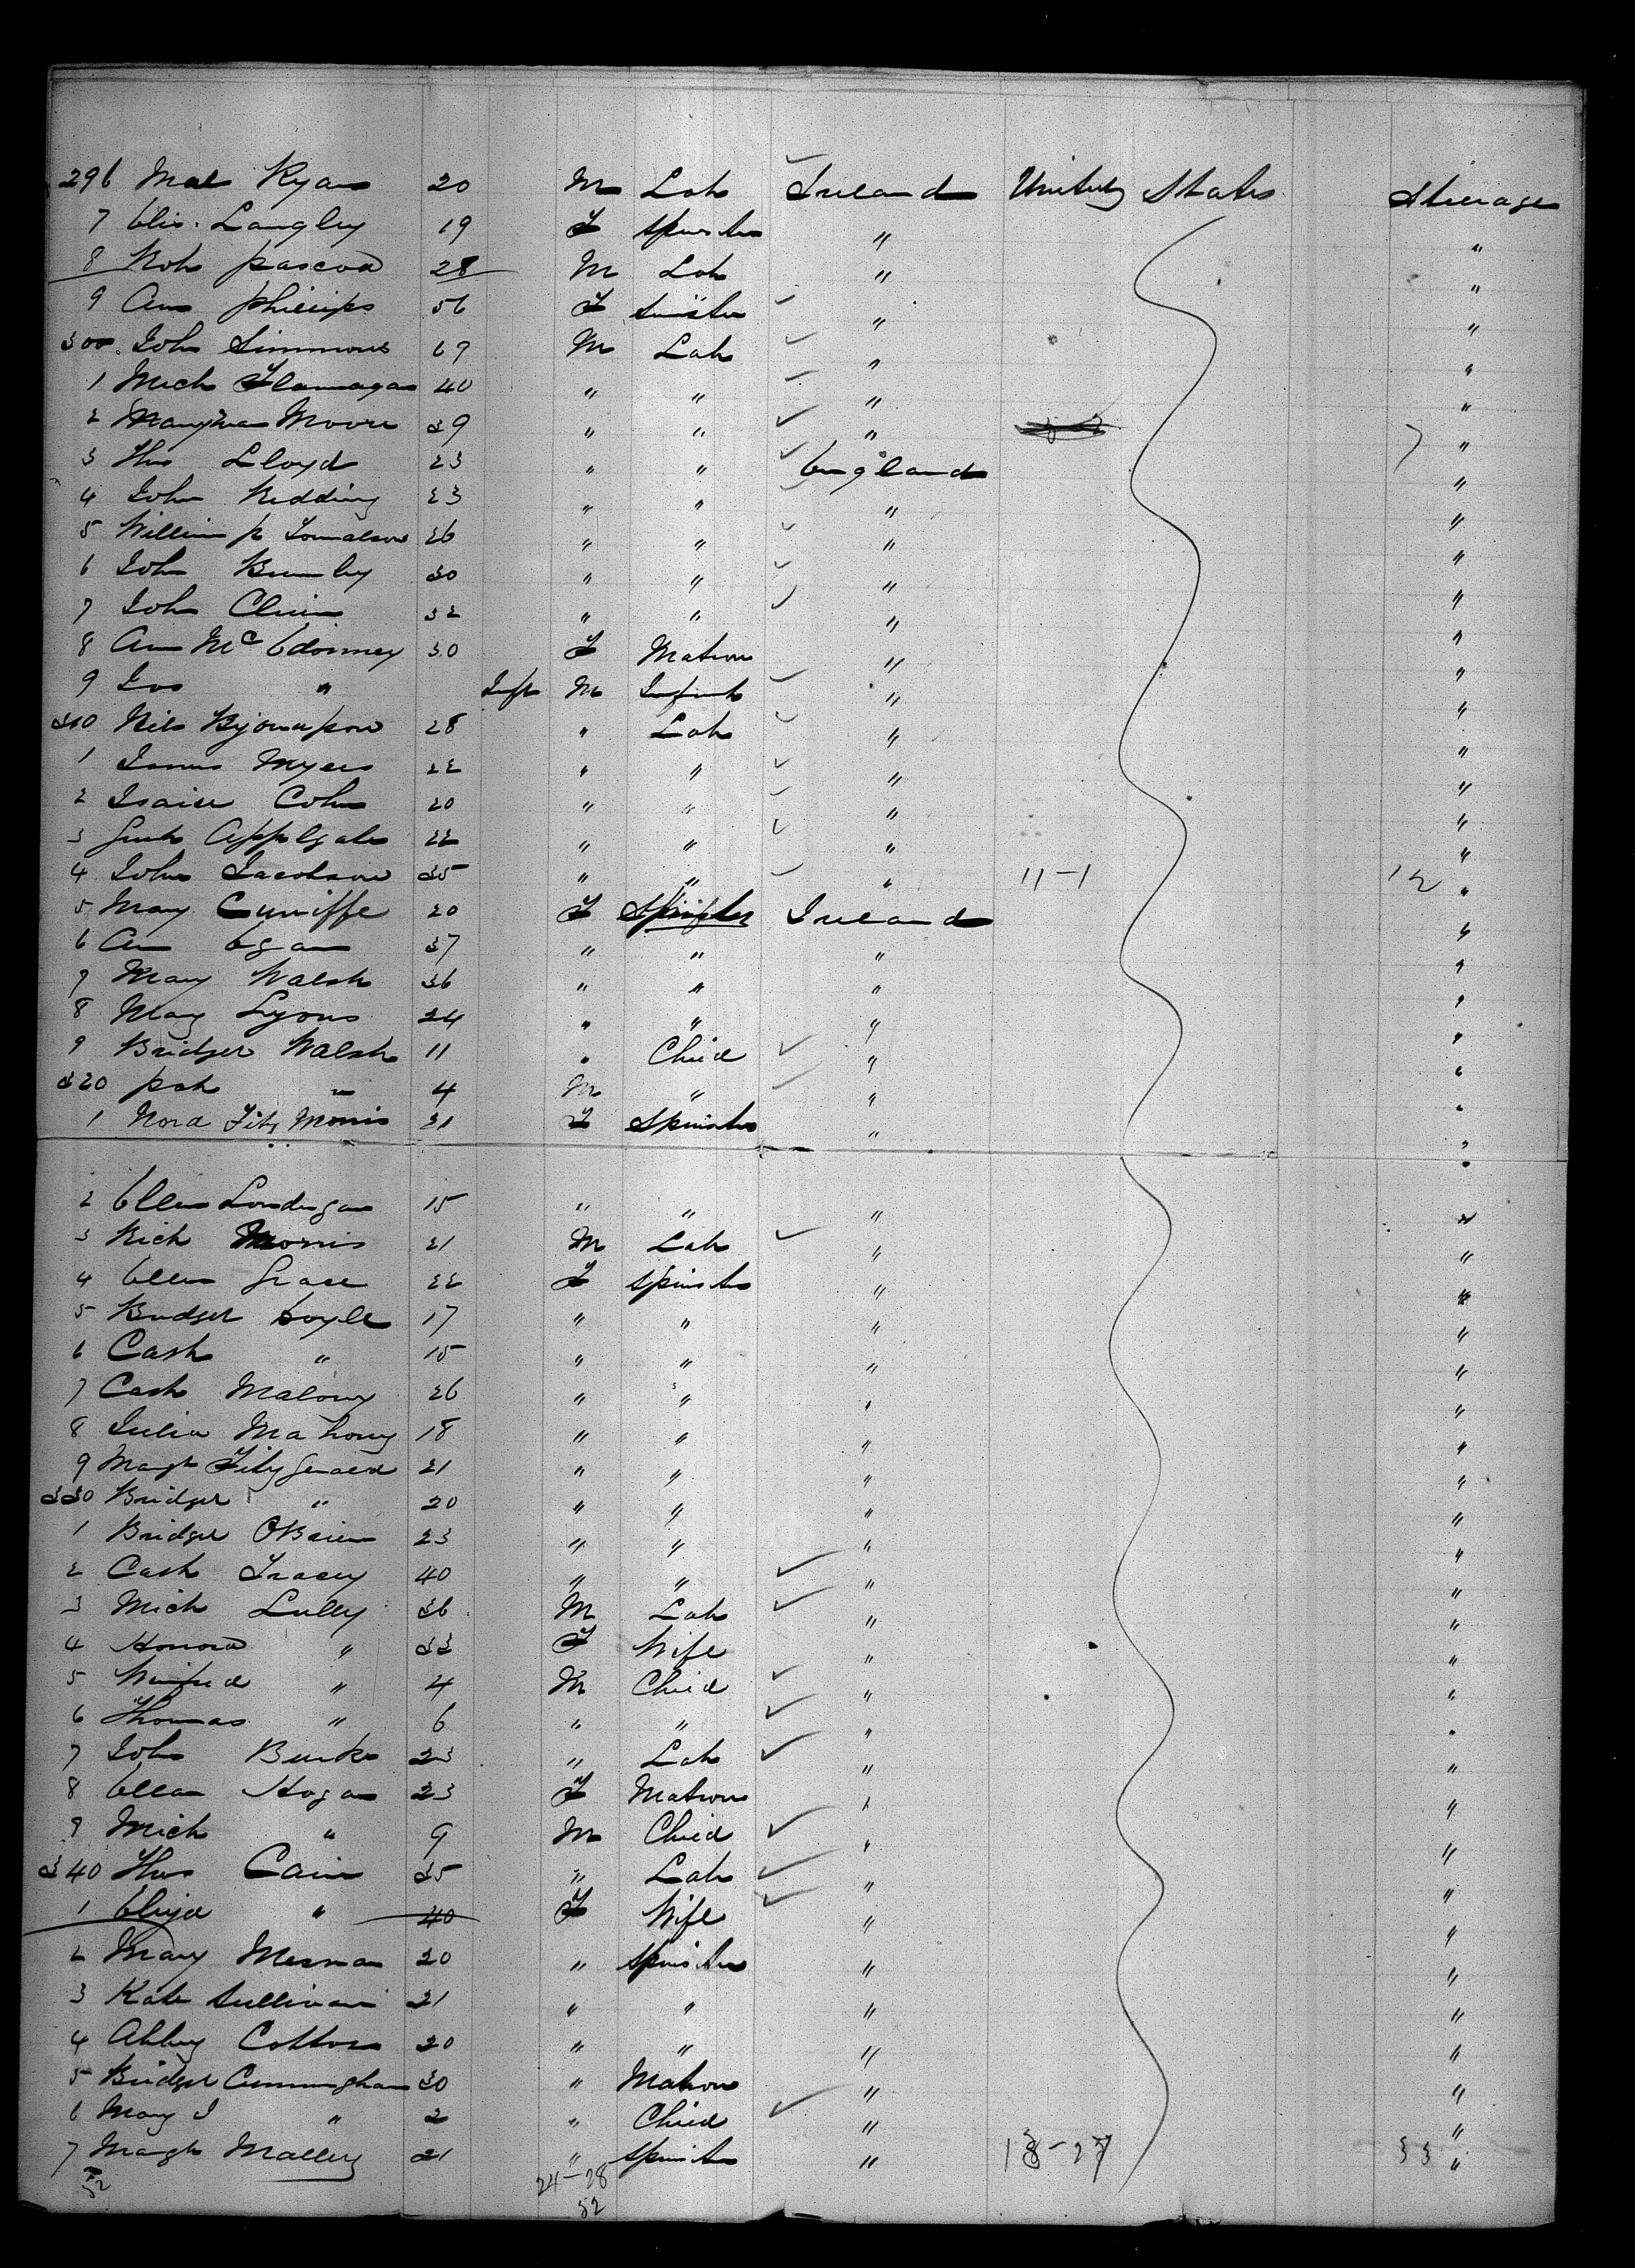 296 Mal Ryan 20 M Lab Ireland United States Steerage
7 Elis. Langley 19 F Spinster " "
8 Rob Pascoa 28 M Lab " "
9 Ann Phillips 56 F Spinster " "
300 John Simmons 69 M Lab " "
1 Mich Flannagan 40 " " " "
2 Moore 39 " " " "
3 Thos Lloyd 23 " " England "
4 John Redding 23 " " " "
5 William P Tomalson 26 " " " "
6 John 30 " " " "
7 John 32 " " " "
8 Ann Mc 30 F Matron " "
9 Jos " Inft M Infant " "
310 Nils 28 " Lab " "
1 James Myers 22 " " " "
2 Isaise Cohn 20 " " " "
3 Applgate 22 " " " "
4 John Jacobson 35 " " " 11-1 12 "
5 Mary Cuniffe 20 F Spinster Ireland "
6 Ann Egan 37 " " " "
7 Mary Walsh 36 " " " "
8 Mary Lyons 24 " " " "
9 Bridget Walsh 11 " Child " "
320 Pat " 4 M " " "
1 Nora Fitz Morris 31 F Spinster " "
2 Ellen Londrgan 15 " " " "
3 Rich Morris 21 M Lab " "
4 Ellen Grace 22 F Spinster " "
5 Bridget Doyle 17 " " " "
6 Cath " 15 " " " "
7 Cath Malony 26 " " " "
8 Julia Mahony 18 " " " "
9 Margt Fitzgerald 21 " " " "
330 Bridget " 20 " " " "
1 Bridget OBrien 23 " " " "
2 Cath Tracey 40 " " " "
3 Mich Lully 36 M Lab " "
4 Honora " 33 F Wife " "
5 Winfred " 4 M Child " "
6 Thomas " 6 " " " "
7 John Burke 23 " Lab " "
8 Ellen Hogan 23 F Matron " "
9 Mich " 9 M Child " "
340 Thos Cain 35 " Lab " "
1 Eliza " 40 F Wife " "
2 Mary 20 " Spinster " "
3 Kate Sullivan 21 " " " "
4 Abbey Cotton 20 " " " "
5 Bridget Cunningham 30 " Matron " "
6 Mary J " 2 " Child " "
7 Margt Malley 21 " Spinster " 33 "
52 24-28
52